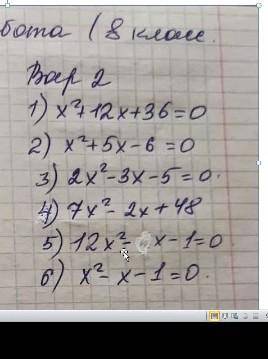 бота (8 класс.
Вар 2
1) x²+12x+36=0
2) x²+5x-6=0
3) 2x²-3x-5=0.
4) 7x²-2x+48
5) 12x²- x-1=0
6) x²-x-1=0.